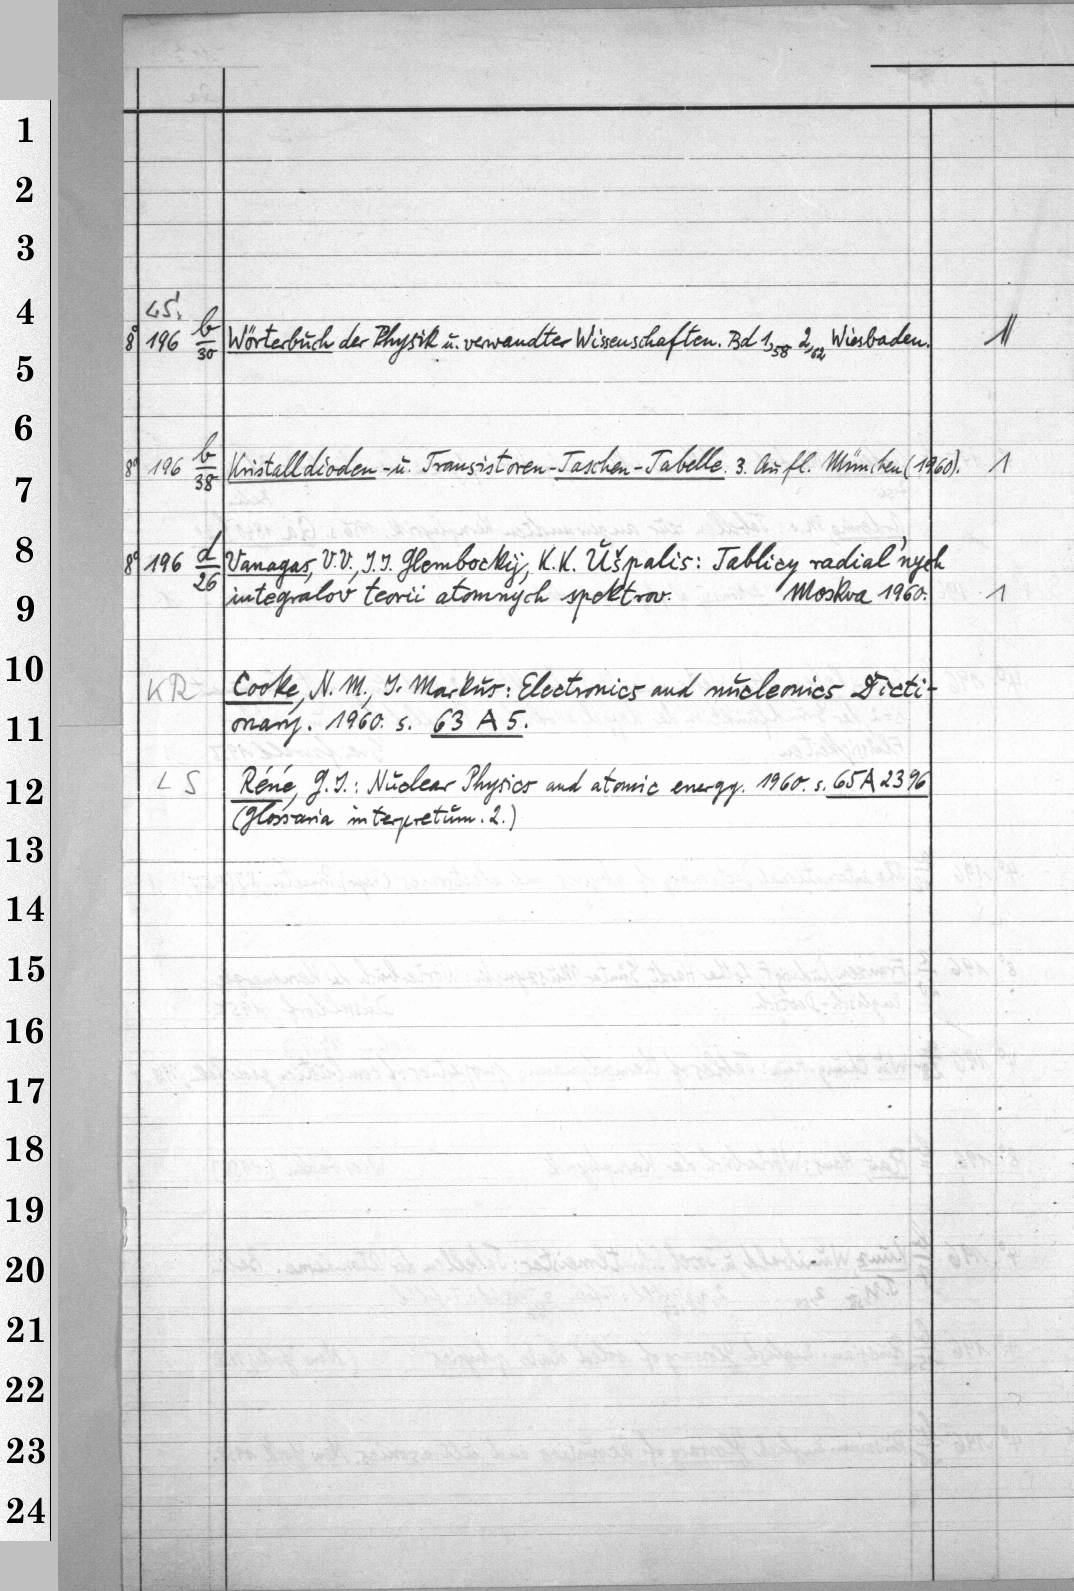 1
2
3
4
LS!
8° 196 b/30 Wörterbuch der Physik u. verwandter Wissenschaften. Bd 1,58 2,62 Wiesbaden. 11
5
6
8° 196 b/38 Kristalldioden- u. Transistoren-Taschen-Tabelle. 3. Aufl. München (1960). 1
7
8
8° 196 d/26 Vanagas, V.V., I.I. Glembockij, K.K. Ušpalis: Tablicy radial'nych
integralov teorii atomnych spektrov. Moskva 1960. 1
9
10
KR Cooke, N. M., J. Markus: Electronics and nucleonics Dicti-
onary. 1960. s. 63 A 5.
11
LS Réné, G. J.: Nuclear Physics and atomic energy. 1960. s. 65 A 2396
12
(Glossaria interpretum. 2.)
13
14
15
16
17
18
19
20
21
22
23
24